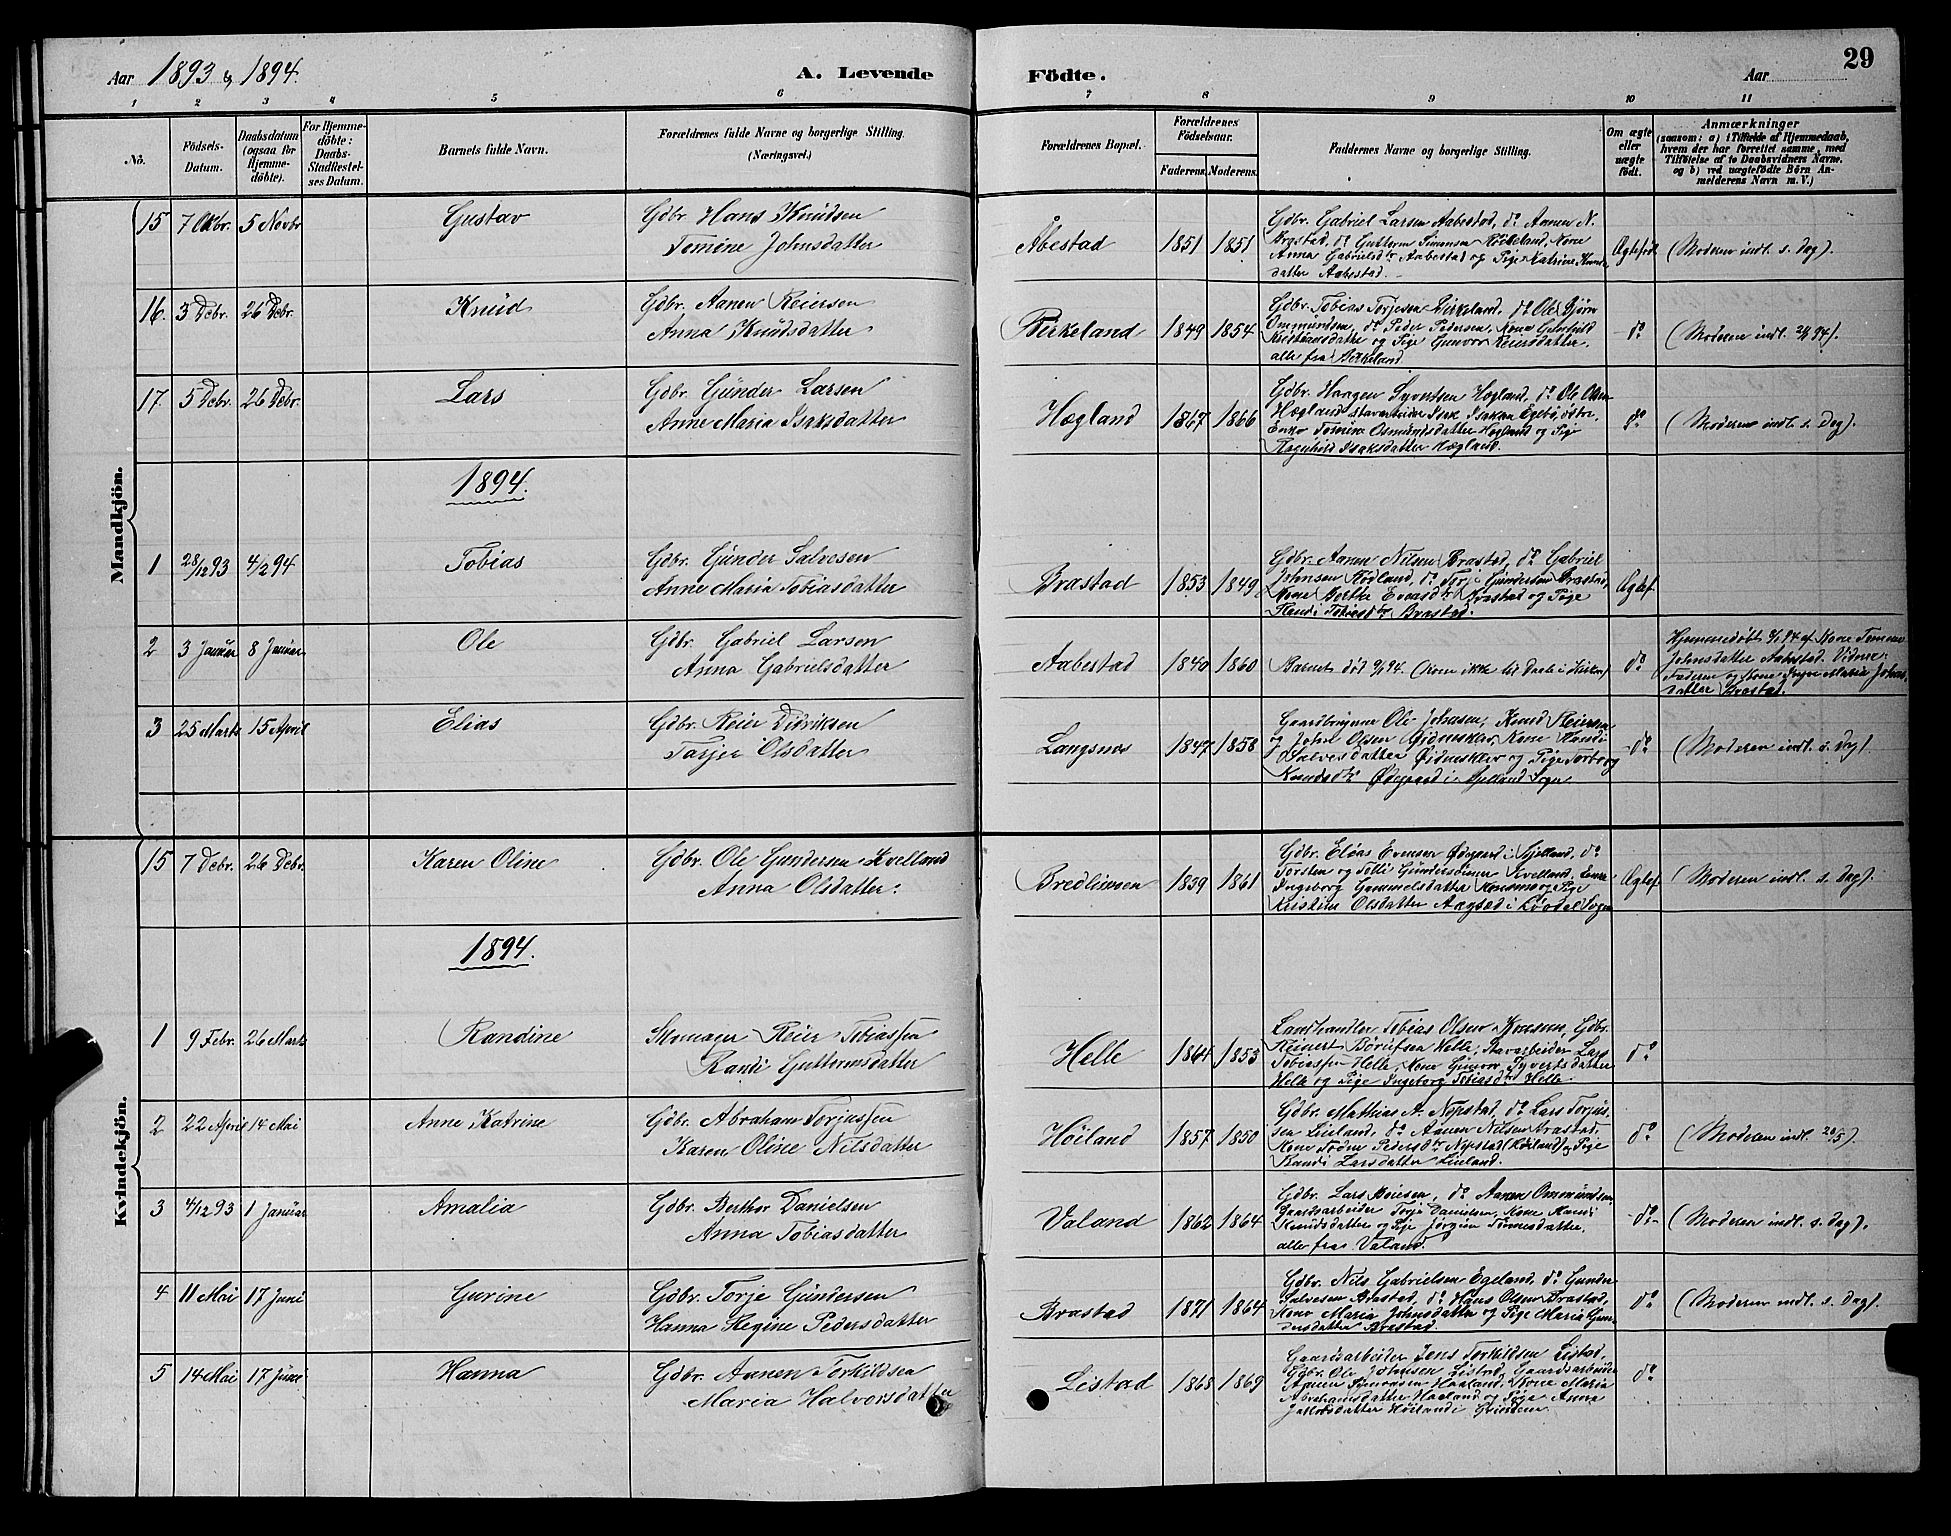 Aar 1893 & 1894. A. Levende Födte. Aar 29
1 2 3 4 5 6 7 8 9 10 11
No. Födsels-Datum. Daabsdatum (ogsaa for Hjemmedöbte). For Hjemmedöbte: Daabs-Stadfæstelses Datum. Barnets fulde Navn. Forældrenes fulde Navne og borgerlige Stilling. (Næringsvei.) Forældrenes Bopæl. Forældrenes Födselsaar. Faderens. Moderens. Faddernes Navne og borgerlige Stilling. Om ægte eller uægte födt. Anmærkninger (saasom: a) i Tilfælde af Hjemmedaab, hvem der har forrettet samme, med Tilföielse af to Daabsvidners Navne. og b) ved uægtefödte Börn Anmelderens Navn m. V.)
Mandkjön.
15 7 Oktbr. 5 Novbr Gustav Gdbr Hans Knudsen
Tomine Johnsdatter
Åbestad 1851 1851
Gdbr. Gabriel Larsen Aabestad, do Aanen N.
Brastad, do Guttorm Simonsen Röiseland, Kone
Anna Gabrielsdtr Aabestad og Pige Katrine Knuds
datter Aabestad.
Ægtefödt (Moderen indl. s. Dag).
16. 3 Debr. 26 Debr. Knud Gdbr. Aanen Reiersen
Anna Knudsdatter
Birkeland 1849 1854
Gdbr. Tobias Torjesen Birkeland, do Ole Bjørn
Ommundsen, do Peder Pedersen, Kone
Kristiansdatter og Pige Gunvor Reiersdatter,
alle fra Birkeland.
do (Moderen indl. 94).
17. 5 Debr. 26 Debr. Lars Gdbr. Gunder Larsen
Anne Maria Isaksdatter
Hægland 1867 1866
Gdbr. Haagen Syvertsen Hægland, do Ole Olsen
Hægland Isak Isaksen
Enke Tomine Osmundsdatter Hægland og Pige
Ragnhild Isaksdatter Hægland.
do (Moderen indl. s. Dag).
1894.
1 28/12 93 4/2 94 Tobias Gdbr. Gunder Salvesen
Anne Maria Tobiasdatter
Brastad 1853 1849
Gdbr. Aanen Nilsen Brastad, do Gabriel
Johnsen Rödland, do Torje Gundersen Brastad,
Kone Berthe Evensdtr Brastad og Pige
Randi Tobiasdtr Brastad.
Ægtef.
2 3 Januar 8 Januar Ole Gdbr. Gabriel Larsen
Anna Gabrielsdatter
Aabestad 1840 1860
Barnet död 94. Kom ikke til Daab i Kirken
do
Hjemmedöbt 94 af Kone Tomine
Johnsdatter Aabestad. Vidner:
Faderen og Kone Inger Maria Johns-
datter Brastad.
3 25 Marts 15 April Elias Gdbr. Reier Didriksen
Tarjer Olsdatter
Langsnes 1847 1858
Gaardbrugerne Ole Johnsen, Knud Reiersen
og John Olsen Øidneskler, Kone Randi
Salvesdatter Øidneskler og Pige Torborg
Knudsdtr Ødegaard i Øjelland Sogn
do (Moderen indl. s. Dag).
Kvindekjön.
15 7 Debr. 26 Debr. Karen Oline Gdbr. Ole Gundersen Kvelland
Anna Olsdatter.
Bredlimoen 1839 1861
Gdbr. Elias Evensen Ødegaard i Øjelland, do
Torsten og Gundersönner Kvelland,
Ingeborg Gammelsdatter og Pige
Kristine Olsdatter i Sogn
Ægtef. (Moderen indl. s. Dag).
1894.
1 9 Febr. 26 Marts Randine Skomager Reier Tobiassen
Randi Guttormsdatter
Helle 1864 1853
Landhandler Tobias Olsen Gdbr.
Reinert Börufsen Helle, Lars
Tobiassen Helle, Kone Syvertsdatter
Helle og Pige Ingeborg Tobiasdtr Helle.
do
2 22 April 14 Mai Anne Katrine Gdbr. Abraham Torjussen
Karen Oline Nilsdatter
Höiland 1857 1850
Gdbr. Mathias A. Nepstad, do Lars Torjus-
sen Lieland, do Aanen Nilsen Brastad,
Kone Todne Pedersdtr Nepstad og Pige
Randi Larsdatter Lieland.
do (Moderen indl. 20/5).
3 4/12 93 1 Januar Amalia Gdbr. Berthor Danielsen
Anna Tobiasdatter
Valand 1862 1864
Gdbr. Lars do Aanen Ommundsen
Gaardsarbeider Torje Danielsen, Kone Randi
Knudsdatter og Pige Jörgine Tönnesdatter,
alle fra Valand.
do (Moderen indl. s. Dag).
4 11 Mai 17 Juni Gurine Gdbr. Torje Gundersen
Hanna Regine Pedersdatter
Brastad 1871 1864
Gdbr. Nils Gabrielsen Egeland, do Gunder
Salvesen Brastad, do Hans Olsen Brastad,
Kone Maria Johnsdatter og Pige Maria Gun-
dersdatter Brastad.
do (Moderen indl. s. Dag).
5 14 Mai 17 Juni Hanna Gdbr. Aanen Torkildsen
Maria Halvorsdatter
Listad 1868 1869
Gaardsarbeider Jens Torkildsen Listad,
Gdbr. Ole Johnsen Listad, Gaardsarbeider
Aanen Simonsen Haaland, Kone Maria
Abrahamsdatter Haaland og Pige Anna
Jakobsdatter Höiland i Grindem
do